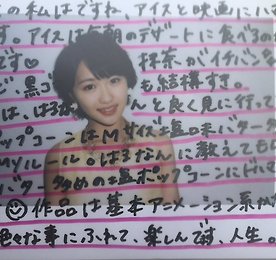 の私はですね、アイスと映画にハ
す。アイスは毎朝のデザートに食べるの
です♡ 抹茶がイチバン
ど、黒ゴ も結構すき。
は、はるな んと良く見に行って
ップコーンはMサイズ塩味バター
Myルール。はるなんに教えても
バター多めの塩ポップコーンにドハ
作品は基本アニメーション系が
色々な事にふれて、楽しんでます、人生。